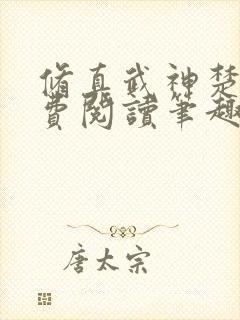 脩真武神楚
費閱讀筆趣
唐太宗